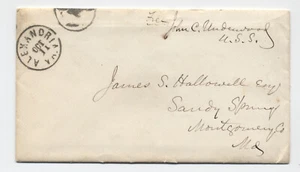 Jno. C. Underwood
U.S.S.
ALEXANDRIA VA
OCT
James S. Hallowell Esq
Sandy Spring
Montgomery Co
Md